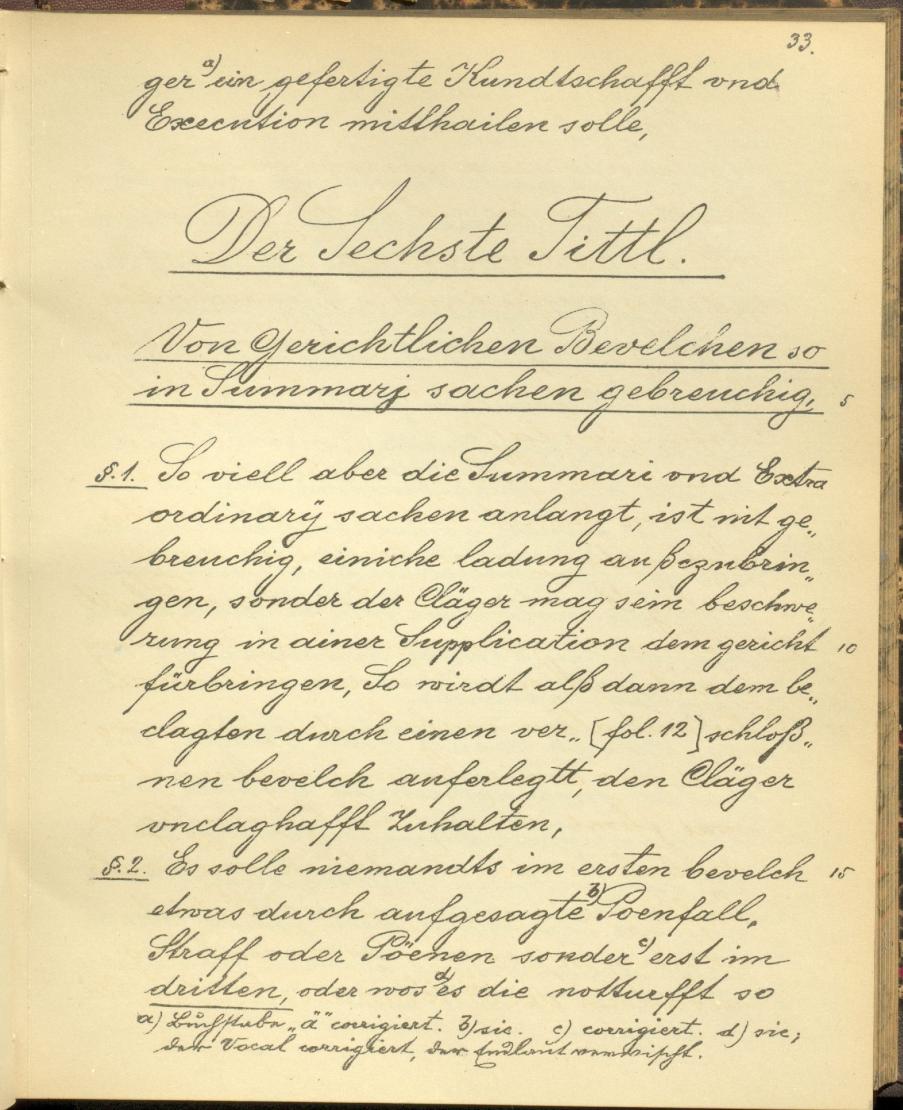 33.
ger a) ein gefertigte Kundtschafft vnd
Execution mitthailen solle,
Der Sechste Tittl.
Von Gerichtlichen Bevelchen so
in Summarj sachen gebreuchig, 5
§.1. So viell aber die Summari vnd Extra
ordinarÿ sachen anlangt, ist nit ge„
breuchig, einiche ladung außzubrin„
gen, sonder der Cläger mag sein beschwe„
rung in ainer Supplication dem gericht 10
fürbringen, So wirdt alß dann dem be„
clagten durch einen ver„ [fol. 12] schloß„
nen bevelch auferlegtt, den Cläger
vnclaghafft Zuhalten,
§.2. Es solle niemandts im ersten bevelch 15
etwas durch aufgesagte b) Poenfall,
Straff oder Pöenen sonder c) erst im
dritten, oder wos d) es die notturfft so
a) Buchstabe „ä" corrigiert. b) sic. c) corrigiert. d) sic;
der Vocal corrigiert, der Endlaut verwischt.